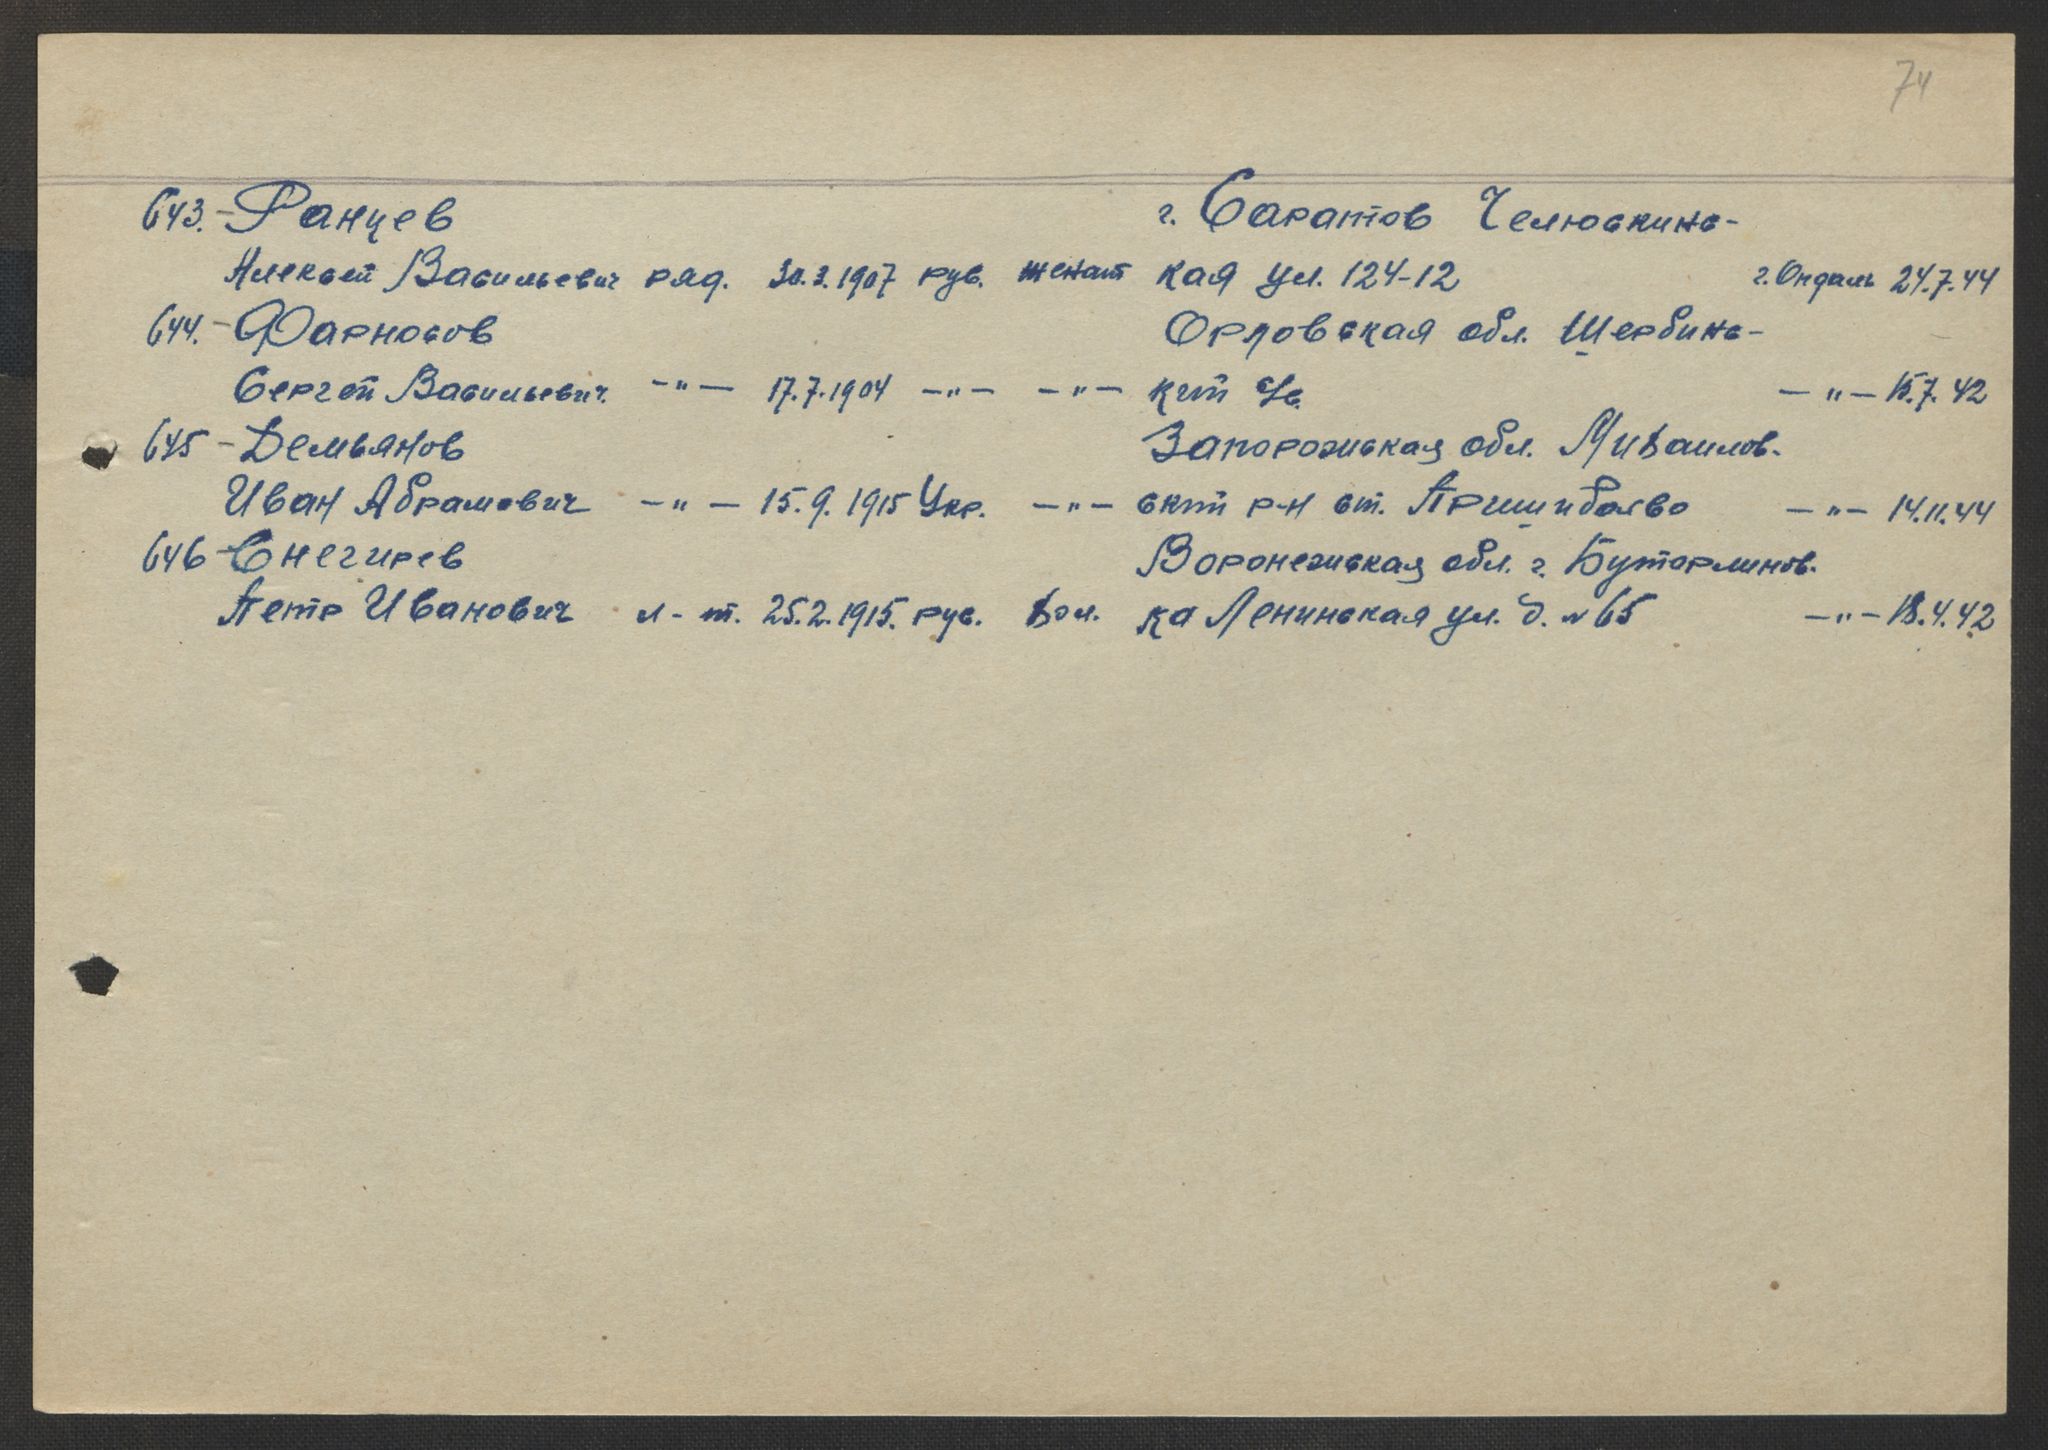 74
643. - Ранцев г. Саратов Челюскинс-
Алексей Васильевич ряд. 30.3.1907 рус. женат кая ул. 124-12 г. Ондаль 24.7.44
644. - Фарносов Орловская обл. Щербинс-
Сергей Васильевич. -"- 17.7.1904 -"- -"- кий -"- 15.7.42
645 - Демьянов Запорожская обл. Михаилов-
Иван Абрамович -"- 15.9.1915 Укр. -"- ский р-н ст. -"- 14.11.44
646 - Снегирев Воронежская обл. г. Буторлинов-
Петр Иванович л-т. 25.2.1915. рус. Хол. ка Ленинская ул. д. № 65 -"- 18.4.42